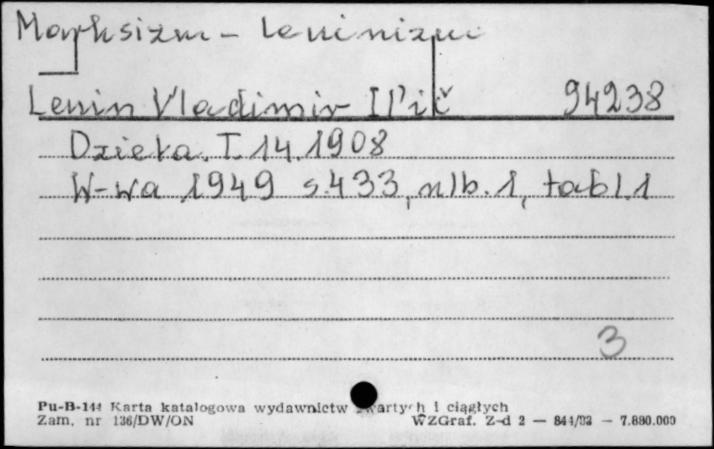 Marksizm - Leninizm
Lenin Vladimir Il'ič 94238
Dzieła. T. 14. 1908
W-wa 1949 s. 433, nlb. 1, tabl. 1
3
Pu-B-144 Karta katalogowa wydawnictw zwartych i ciągłych
Zam. nr 136/DW/ON WZGraf. Z-d 2 — 844/83 — 7.880.000